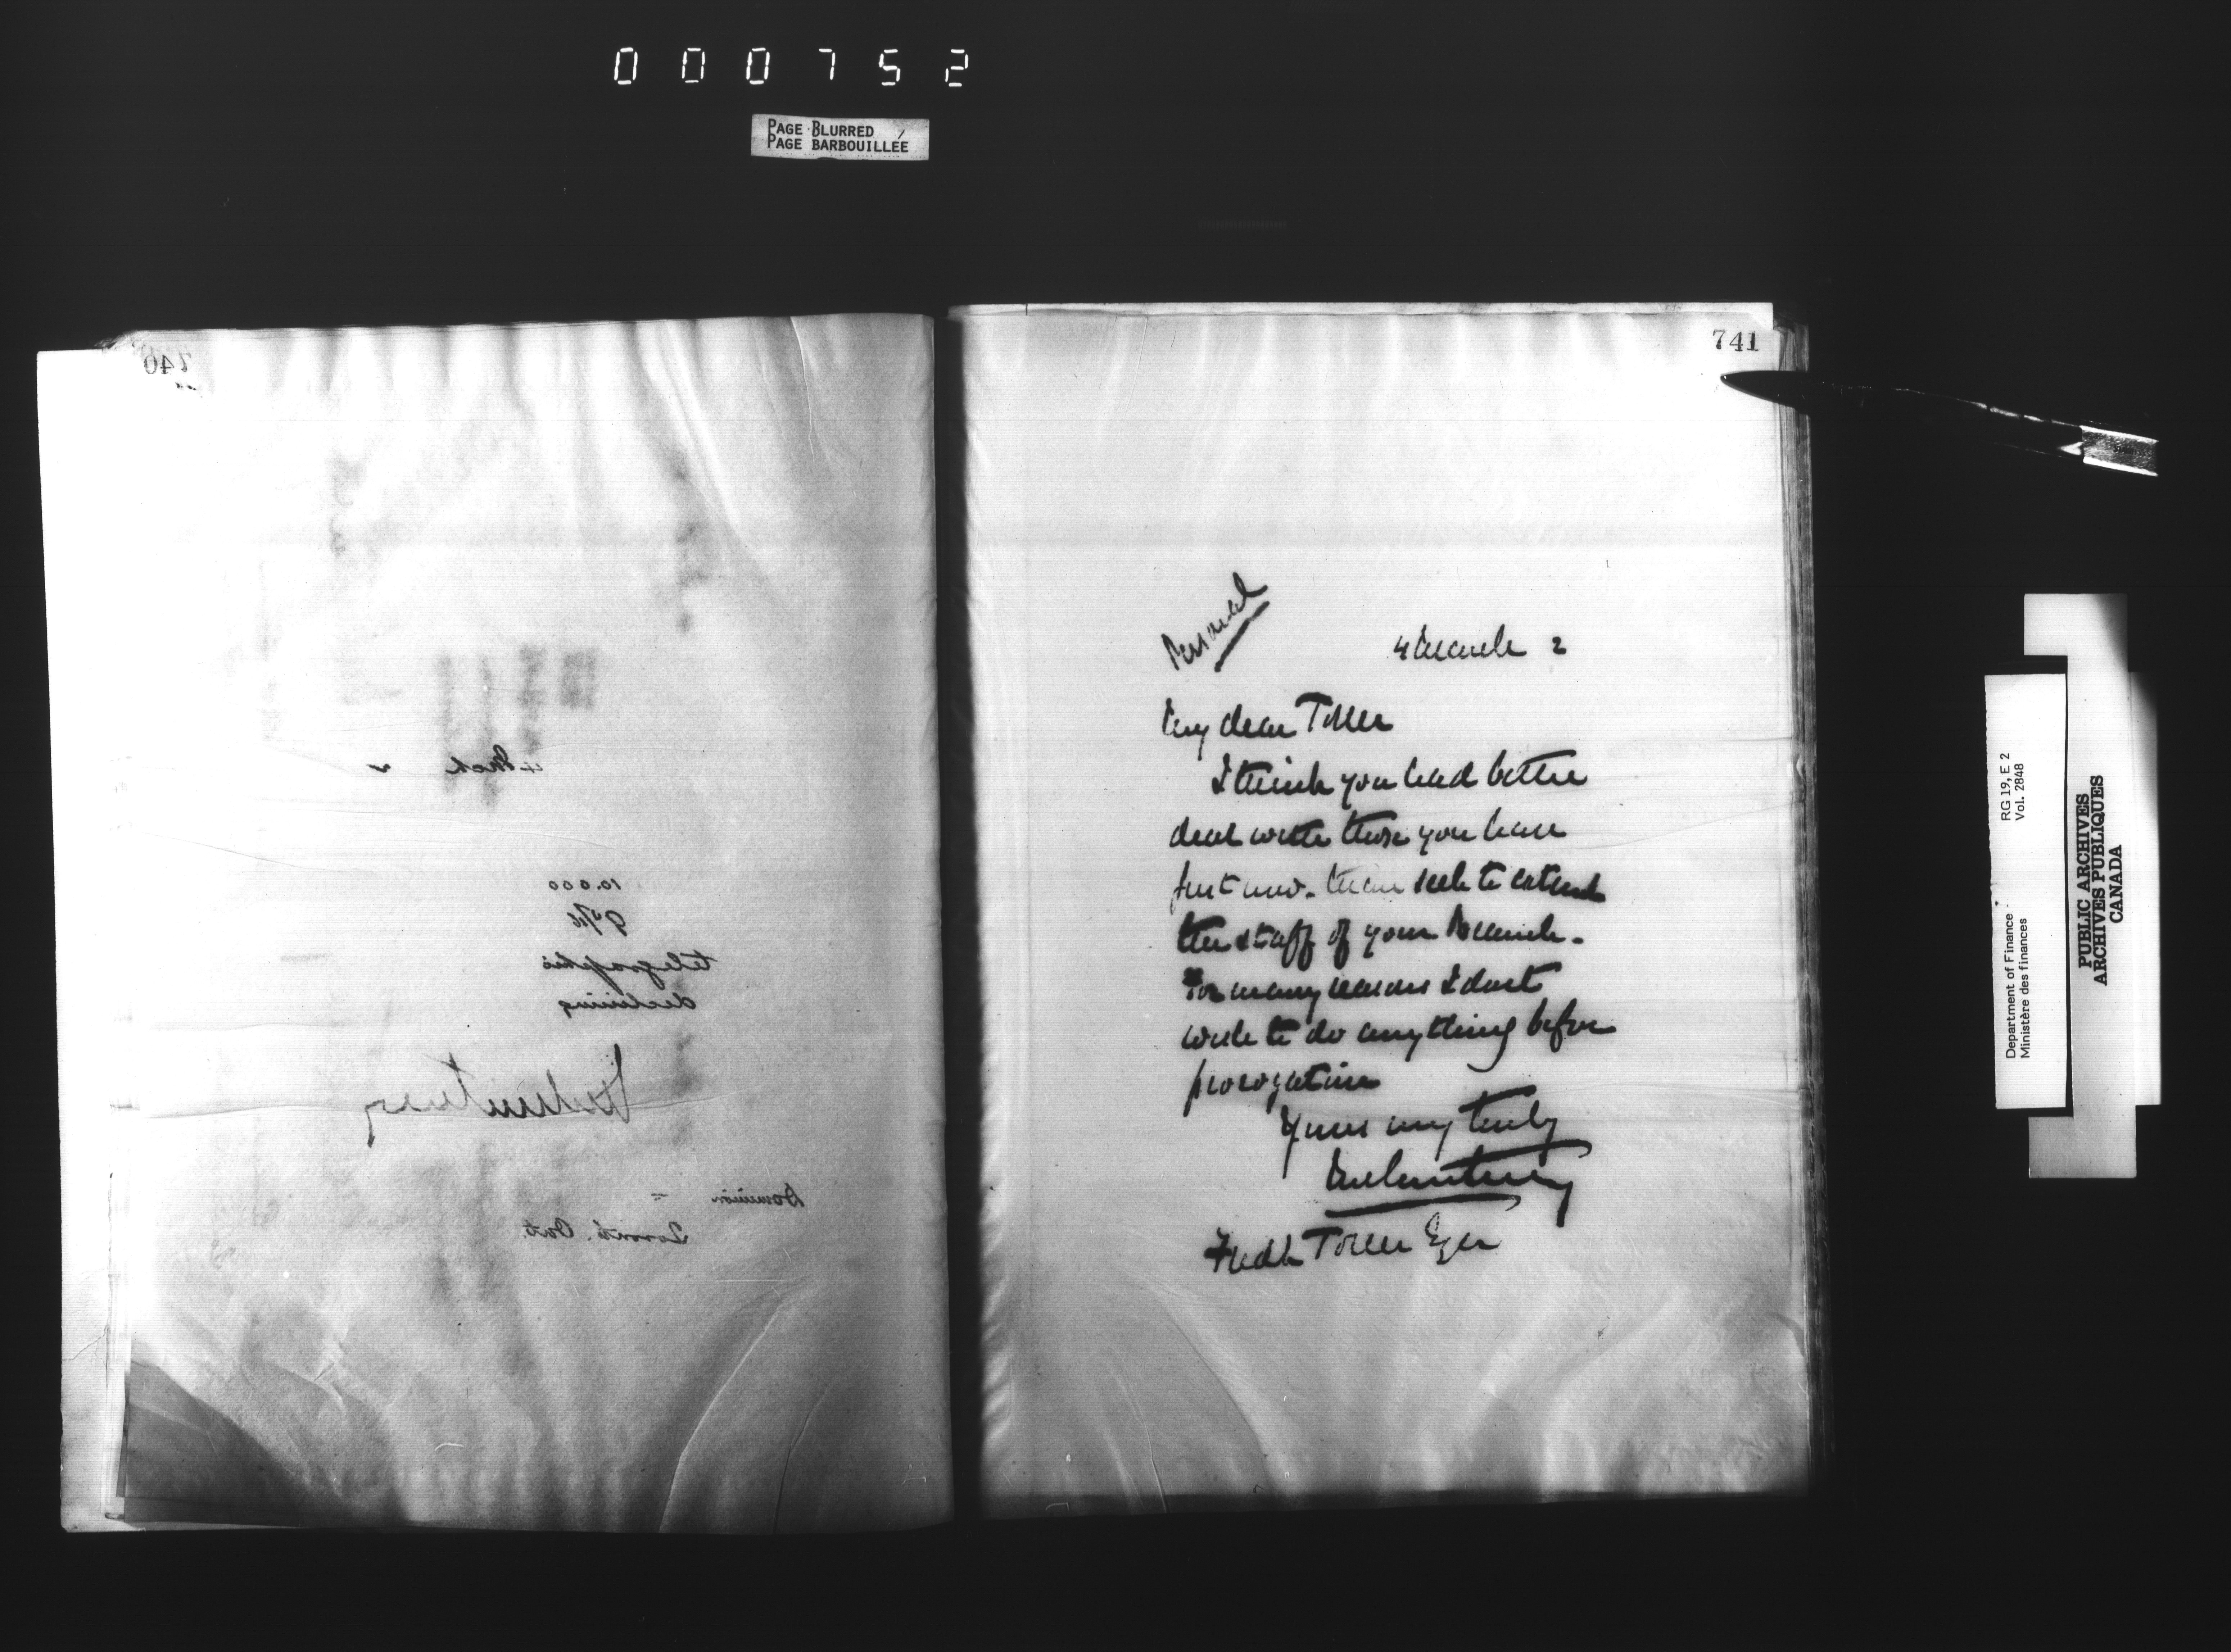 000752
PAGE BLURRED
PAGE BARBOUILLÉE
740
4 Mch 2
10.000
telegraphic
declining
Dominion =
Toronto. Ont.
741
Personal
4 March 2
My dear Toller
I think you had better
deal with those you have
just now. than seek to extend
the staff of your Branch.
For many reasons I don't
wish to do anything before
prorogation
Yours very truly
JM Courtney
Fredk Toller Esqr
Department of Finance RG 19, E 2
Ministère des finances Vol. 2848
PUBLIC ARCHIVES
ARCHIVES PUBLIQUES
CANADA